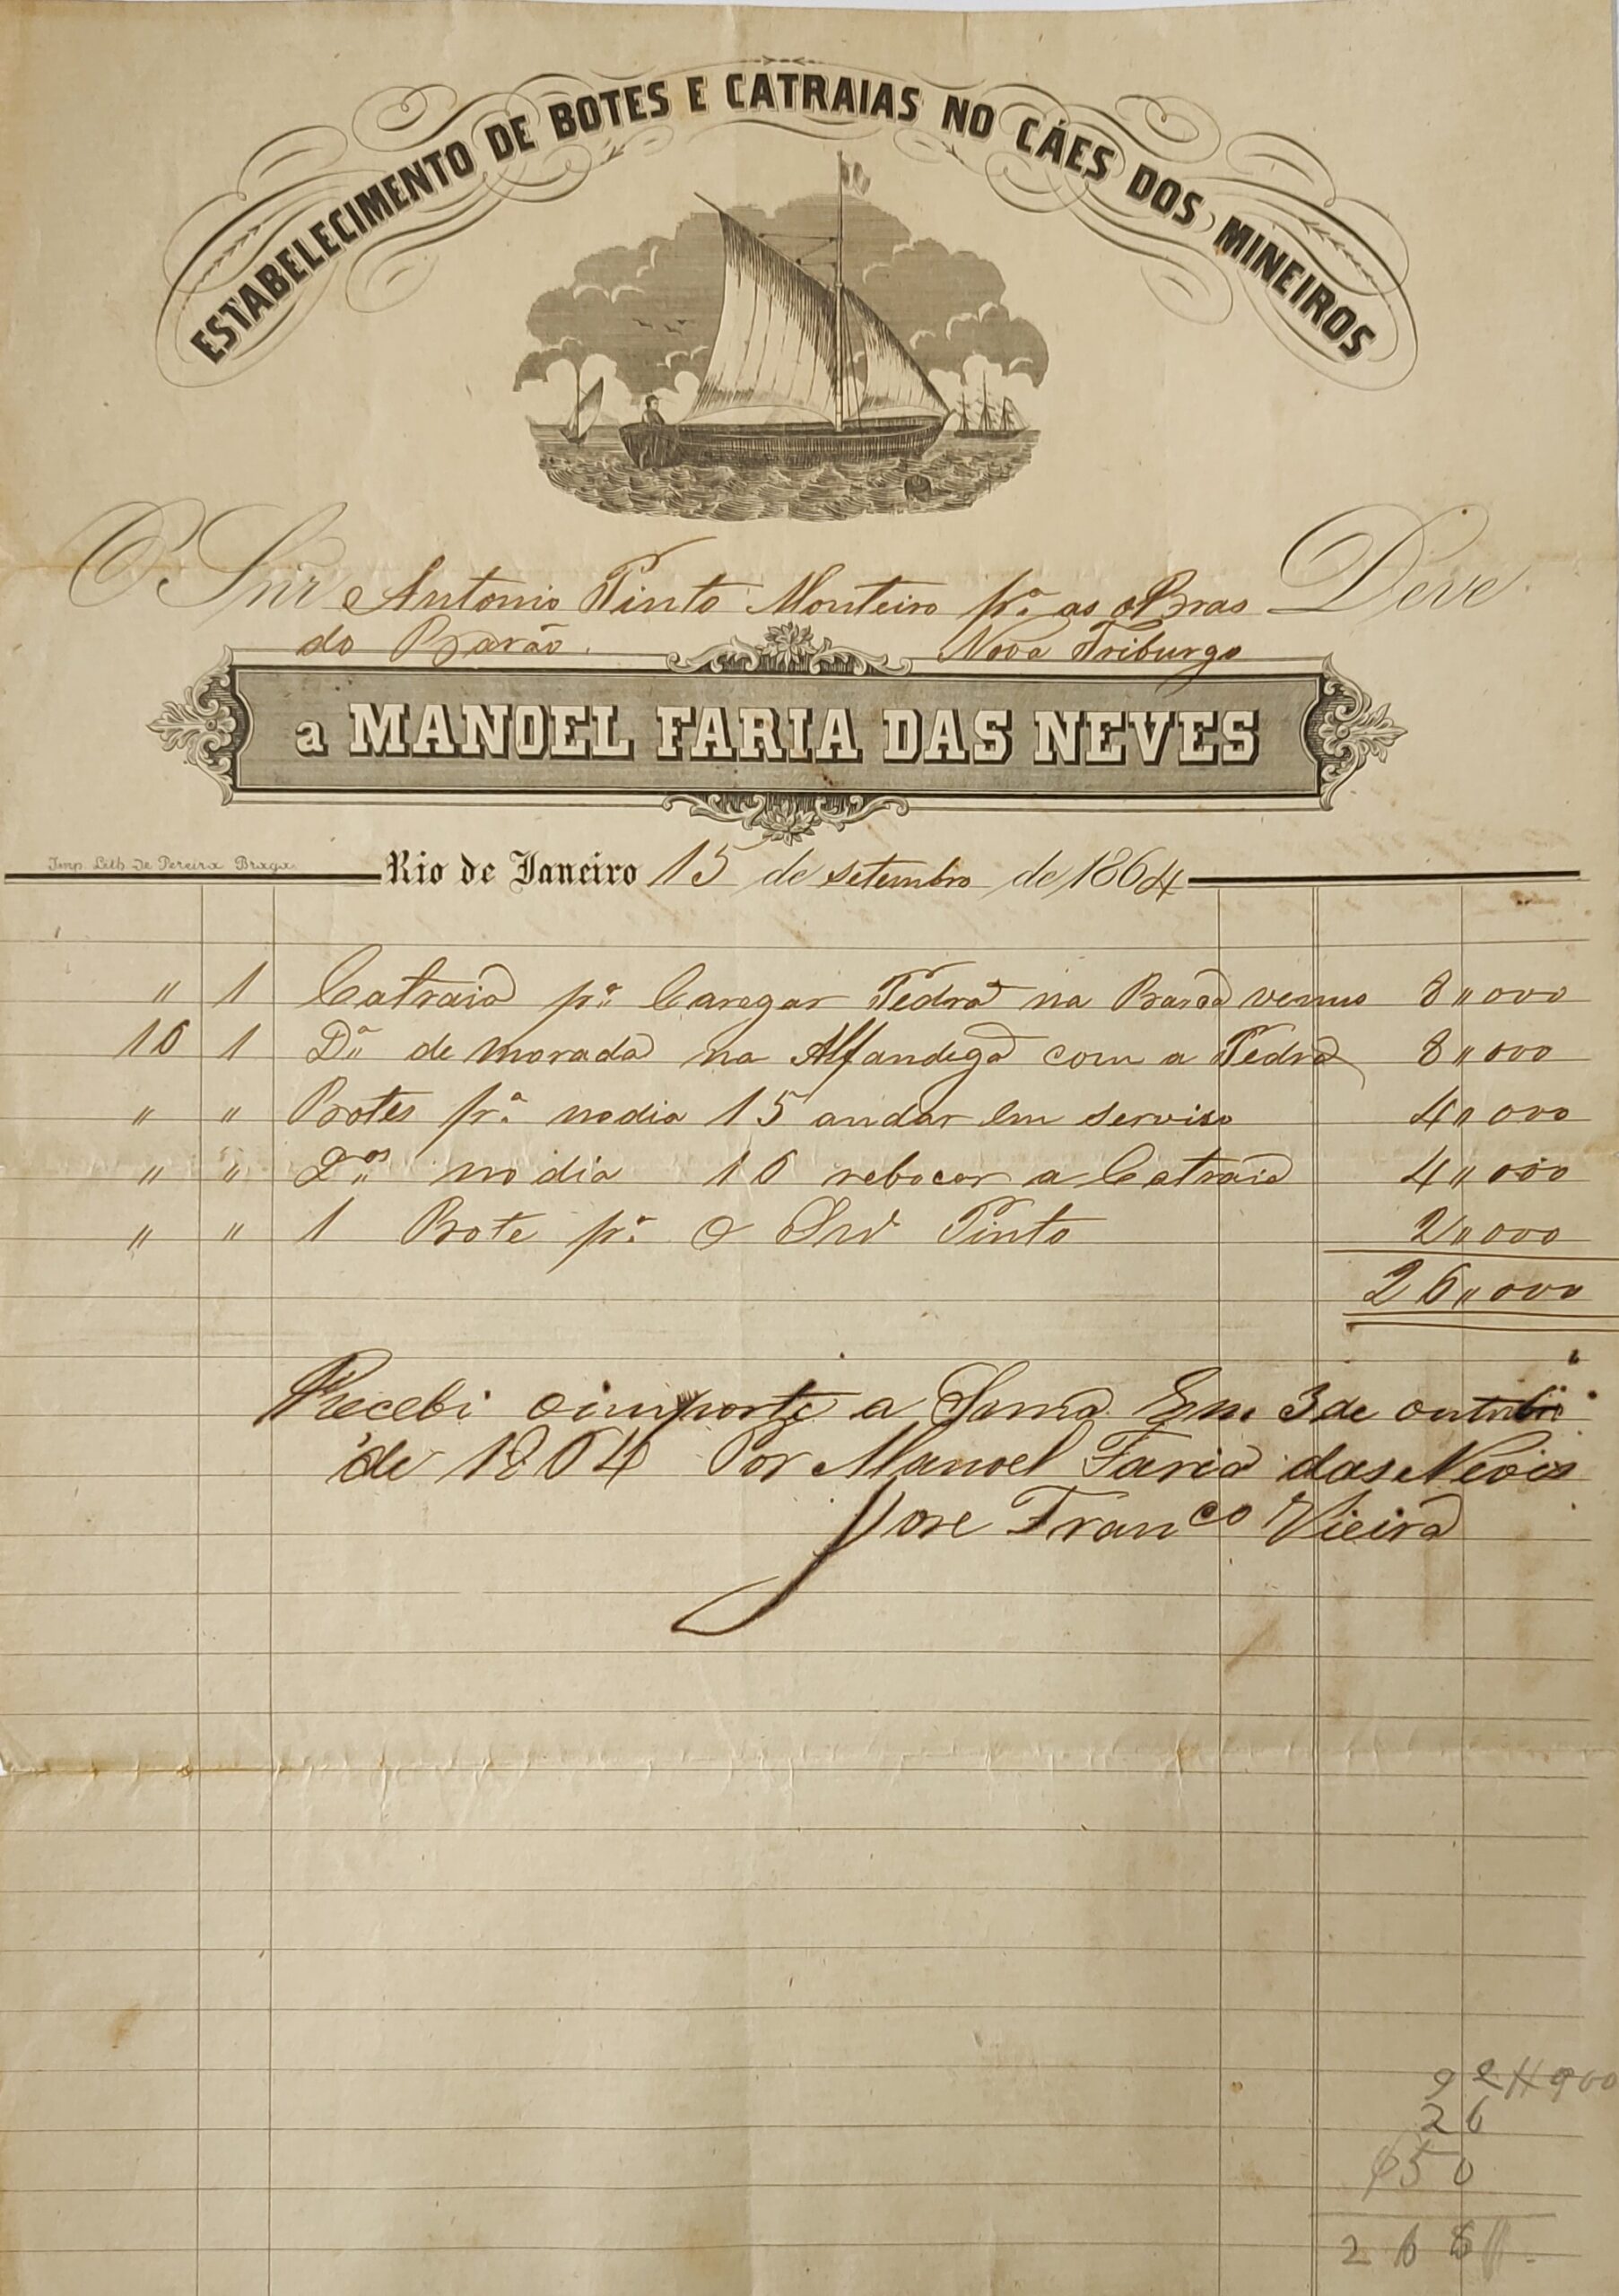 ESTABELECIMENTO DE BOTES E CATRAIAS NO CÁES DOS MINEIROS
O Snr Antonio Pinto Monteiro pª as obras Deve
do Barão. Nova Friburgo
a MANOEL FARIA DAS NEVES
Imp. Lith. De Pereira Braga
Rio de Janeiro 15 de setembro de 1864
" 1 Catraia pª Caregar Pedra na Barca venus 8"000
16 1 Dª de morada na Alfandega com a Pedra 8"000
" " Botes pª no dia 15 andar em serviso 4"000
" " Dos no dia 16 rebocar a Catraia 4"000
" " 1 Bote pª O Snr Pinto 2"000
26"000
Recebi o importe a Soma Em 3 de outubro
de 1864 Por Manoel Faria das Neves
Jose Franco Vieira
26
650
268